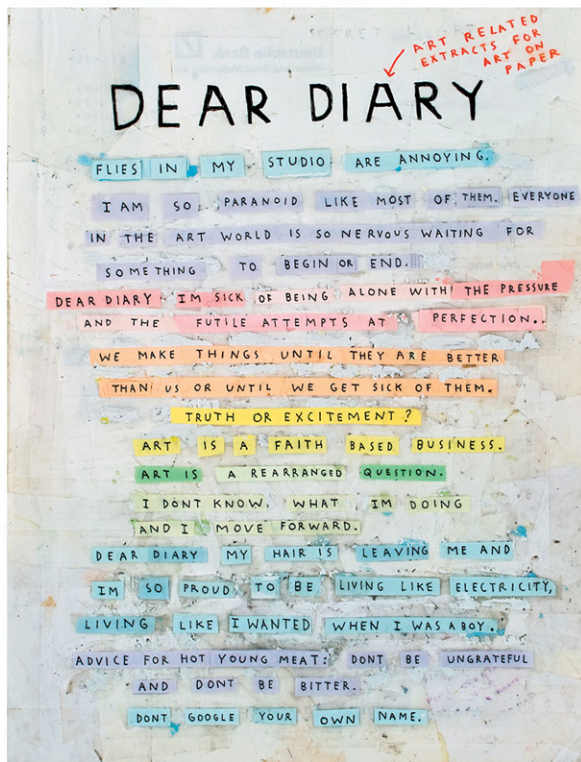 ART RELATED
EXTRACTS FOR
ART ON
PAPER
Deutsche Bank
DEAR DIARY
FLIES IN MY STUDIO ARE ANNOYING.
I AM SO PARANOID LIKE MOST OF THEM. EVERYONE
IN THE ART WORLD IS SO NERVOUS WAITING FOR
SOMETHING TO BEGIN OR END.
DEAR DIARY IM SICK OF BEING ALONE WITH THE PRESSURE
AND THE FUTILE ATTEMPTS AT PERFECTION..
WE MAKE THINGS UNTIL THEY ARE BETTER
THAN US OR UNTIL WE GET SICK OF THEM.
TRUTH OR EXCITEMENT?
ART IS A FAITH BASED BUSINESS.
ART IS A REARRANGED QUESTION.
I DONT KNOW. WHAT IM DOING
AND I MOVE FORWARD.
DEAR DIARY MY HAIR IS LEAVING ME AND
IM SO PROUD TO BE LIVING LIKE ELECTRICITY,
LIVING LIKE I WANTED WHEN I WAS A BOY.
ADVICE FOR HOT YOUNG MEAT: DONT BE UNGRATEFUL
AND DONT BE BITTER.
DONT GOOGLE YOUR OWN NAME.